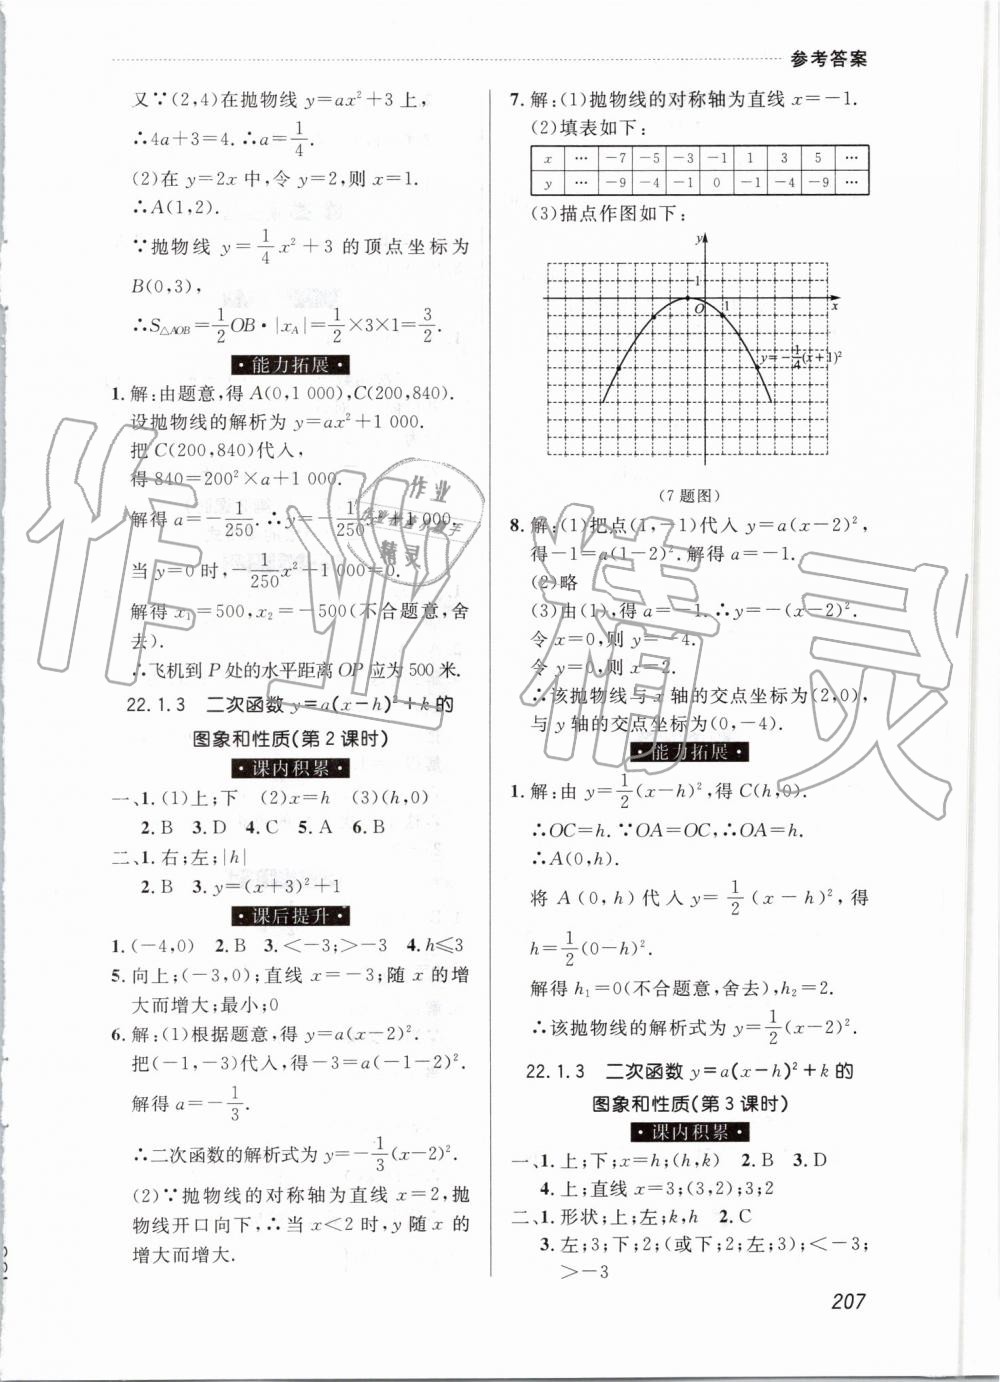 参考答案
又∵(2,4)在抛物线 y=ax²+3 上,
∴4a+3=4.∴a=1/4.
(2)在 y=2x 中,令 y=2,则 x=1.
∴A(1,2).
∵抛物线 y=1/4x²+3 的顶点坐标为
B(0,3),
∴S△AOB=1/2OB·|xA|=1/2×3×1=3/2.
·能力拓展·
1.解:由题意,得 A(0,1 000),C(200,840).
设抛物线的解析为 y=ax²+1 000.
把 C(200,840)代入,
得 840=200²×a+1 000.
解得 a=-1/250.∴y=-1/250x²+1 000.
当 y=0 时,-1/250x²+1 000=0.
解得 x₁=500,x₂=-500(不合题意,舍
去).
∴飞机到 P 处的水平距离 OP 应为 500 米.
22.1.3 二次函数 y=a(x-h)²+k 的
图象和性质(第 2 课时)
·课内积累·
一、1.(1)上;下 (2)x=h (3)(h,0)
2.B 3.D 4.C 5.A 6.B
二、1.右;左;|h|
2.B 3.y=(x+3)²+1
·课后提升·
1.(-4,0) 2.B 3.<-3;>-3 4.h≤3
5.向上;(-3,0);直线 x=-3;随 x 的增
大而增大;最小;0
6.解:(1)根据题意,得 y=a(x-2)².
把(-1,-3)代入,得-3=a(-1-2)².
解得 a=-1/3.
∴二次函数的解析式为 y=-1/3(x-2)².
(2)∵抛物线的对称轴为直线 x=2,抛
物线开口向下,∴当 x<2 时,y 随 x 的
增大而增大.
7.解:(1)抛物线的对称轴为直线 x=-1.
(2)填表如下:
x … -7 -5 -3 -1 1 3 5 …
y … -9 -4 -1 0 -1 -4 -9 …
(3)描点作图如下:
y
1
O 1 x
y=-1/4(x+1)²
(7 题图)
8.解:(1)把点(1,-1)代入 y=a(x-2)²,
得-1=a(1-2)².解得 a=-1.
(2)略
(3)由(1),得 a=-1.∴y=-(x-2)².
令 x=0,则 y=-4.
令 y=0,则 x=2.
∴该抛物线与 x 轴的交点坐标为(2,0),
与 y 轴的交点坐标为(0,-4).
·能力拓展·
1.解:由 y=1/2(x-h)²,得 C(h,0).
∴OC=h.∵OA=OC,∴OA=h.
∴A(0,h).
将 A(0,h)代入 y=1/2(x-h)²,得
h=1/2(0-h)².
解得 h₁=0(不合题意,舍去),h₂=2.
∴该抛物线的解析式为 y=1/2(x-2)².
22.1.3 二次函数 y=a(x-h)²+k 的
图象和性质(第 3 课时)
·课内积累·
一、1.上;下;x=h;(h,k) 2.B 3.D
4.上;直线 x=3;(3,2);3;2
二、1.形状;上;左;k,h 2.C
3.左;3;下;2;(或下;2;左;3);<-3;
>-3
207
作业精灵